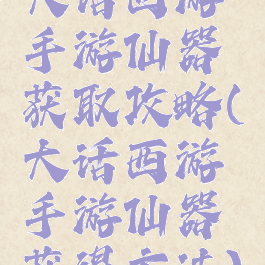 大话西游
手游仙器
获取攻略(
大话西游
手游仙器
获得方法)